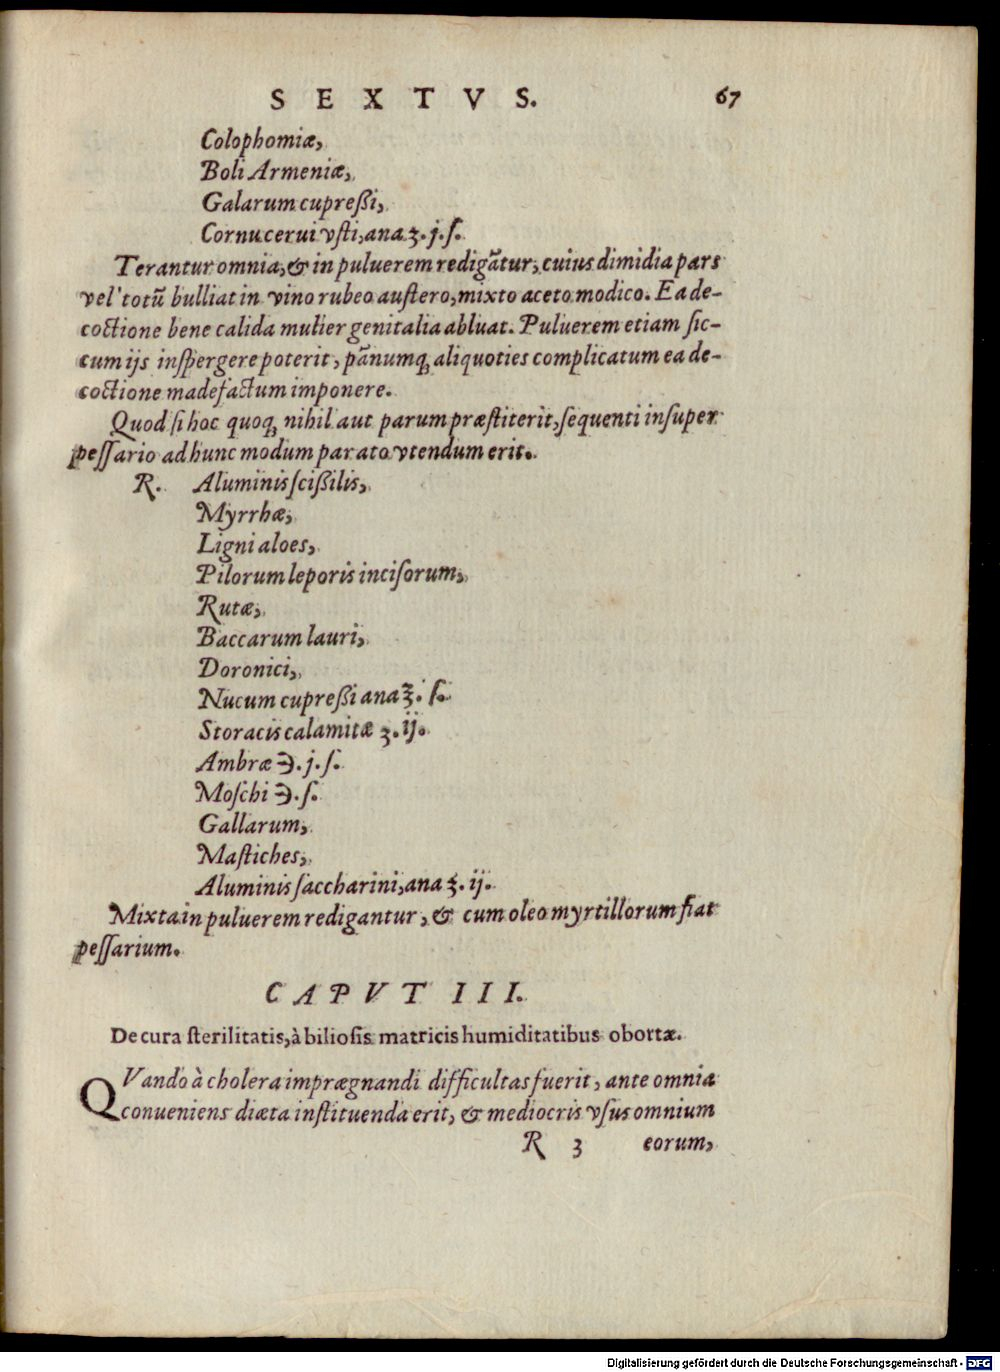 SEXTVS. 67
Colophomiæ,
Boli Armeniæ,
Galarum cupreßi,
Cornu cerui vsti, ana ʒ. j. ſ.
Terantur omnia, & in puluerem redigātur, cuius dimidia pars
vel' totū bulliat in vino rubeo auſtero, mixto aceto modico. Ea de-
coctione bene calida mulier genitalia abluat. Puluerem etiam ſic-
cum ijs inſpergere poterit, pānumq; aliquoties complicatum ea de-
coctione madefactum imponere.
Quod ſi hoc quoq; nihil aut parum præſtiterit, ſequenti inſuper
peſſario ad hunc modum parato vtendum erit.
R. Aluminis ſcißilis,
Myrrhæ,
Ligni aloes,
Pilorum leporis inciſorum,
Rutæ,
Baccarum lauri,
Doronici,
Nucum cupreßi ana ʒ. ſ.
Storacis calamitæ ʒ. ij.
Ambræ ℈. j. ſ.
Moſchi ℈. ſ.
Gallarum,
Maſtiches,
Aluminis ſaccharini, ana ʒ. ij.
Mixta in puluerem redigantur, & cum oleo myrtillorum fiat
peſſarium.
CAPVT III.
De cura ſterilitatis, à bilioſis matricis humiditatibus obortæ.
QVando à cholera imprægnandi difficultas fuerit, ante omnia
conueniens diæta inſtituenda erit, & mediocris vſus omnium
R 3 eorum,
Digitalisierung gefördert durch die Deutsche Forschungsgemeinschaft - DFG